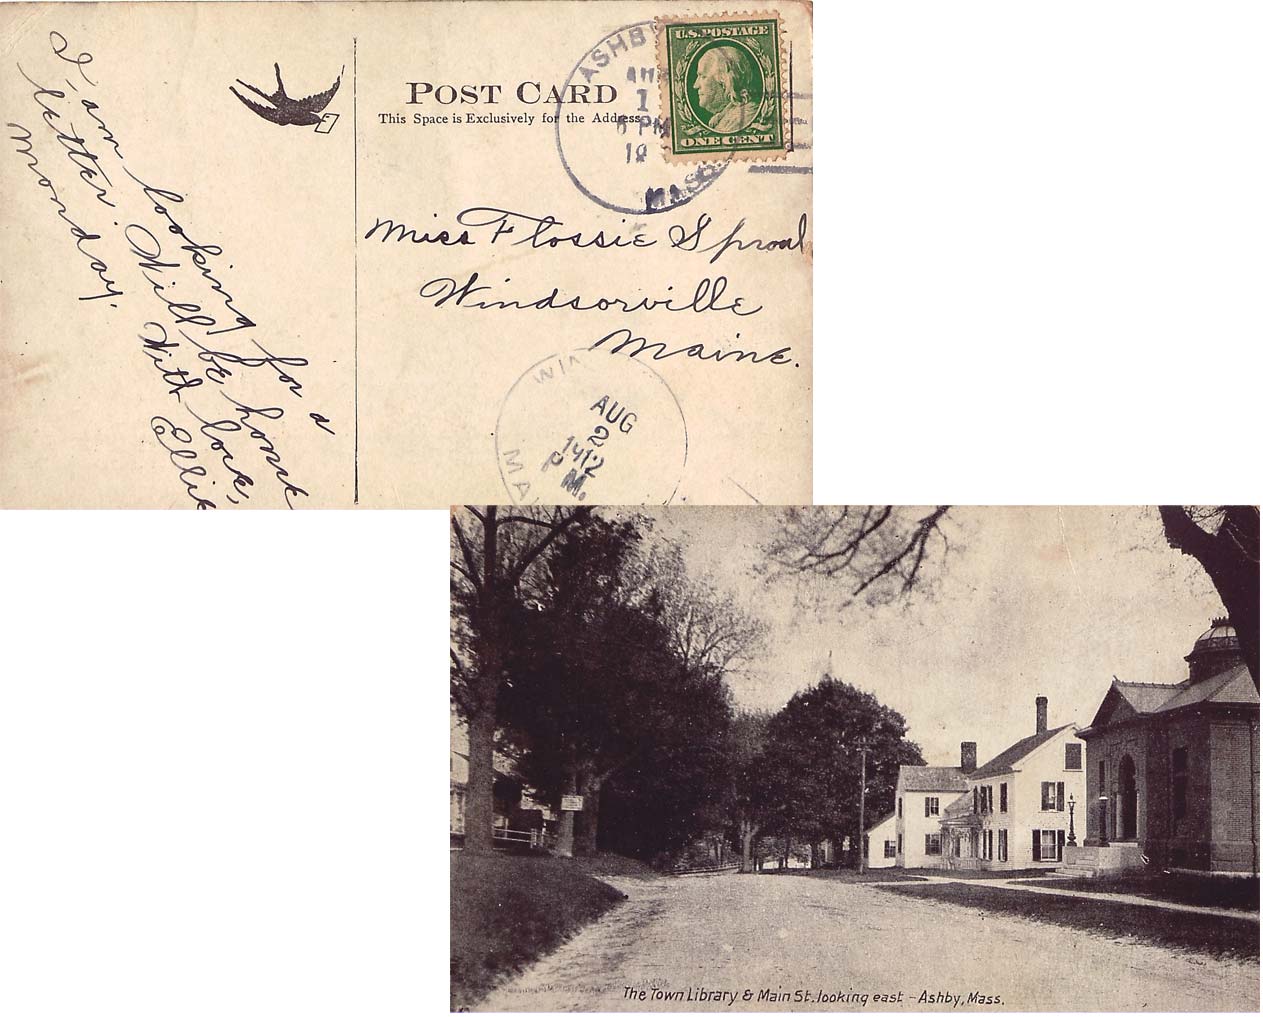 I, am looking for a
letter. Will be home
Monday. With love,
Ellie
POST CARD
This Space is Exclusively for the Address
ASHBY
AUG
1
6 PM
MASS.
U.S. POSTAGE
ONE CENT
Miss Flossie Sproul
Windsorville
Maine.
AUG
2
1912
P M.
The Town Library & Main St. looking east – Ashby, Mass.